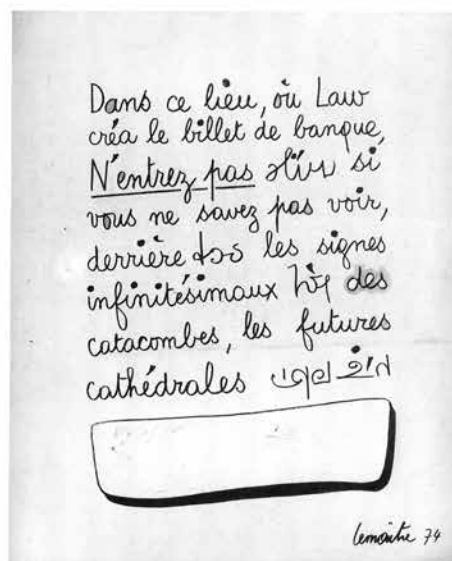 Dans ce lieu, où Law
créa le billet de banque,
N'entrez pas si
vous ne savez pas voir,
derrière les signes
infinitésimaux des
catacombes, les futures
cathédrales
Lemaître 74